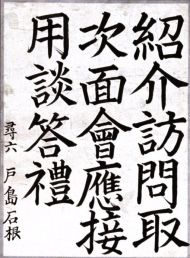 紹介訪問取
次面會應接
用談答禮
尋六 戸島石根